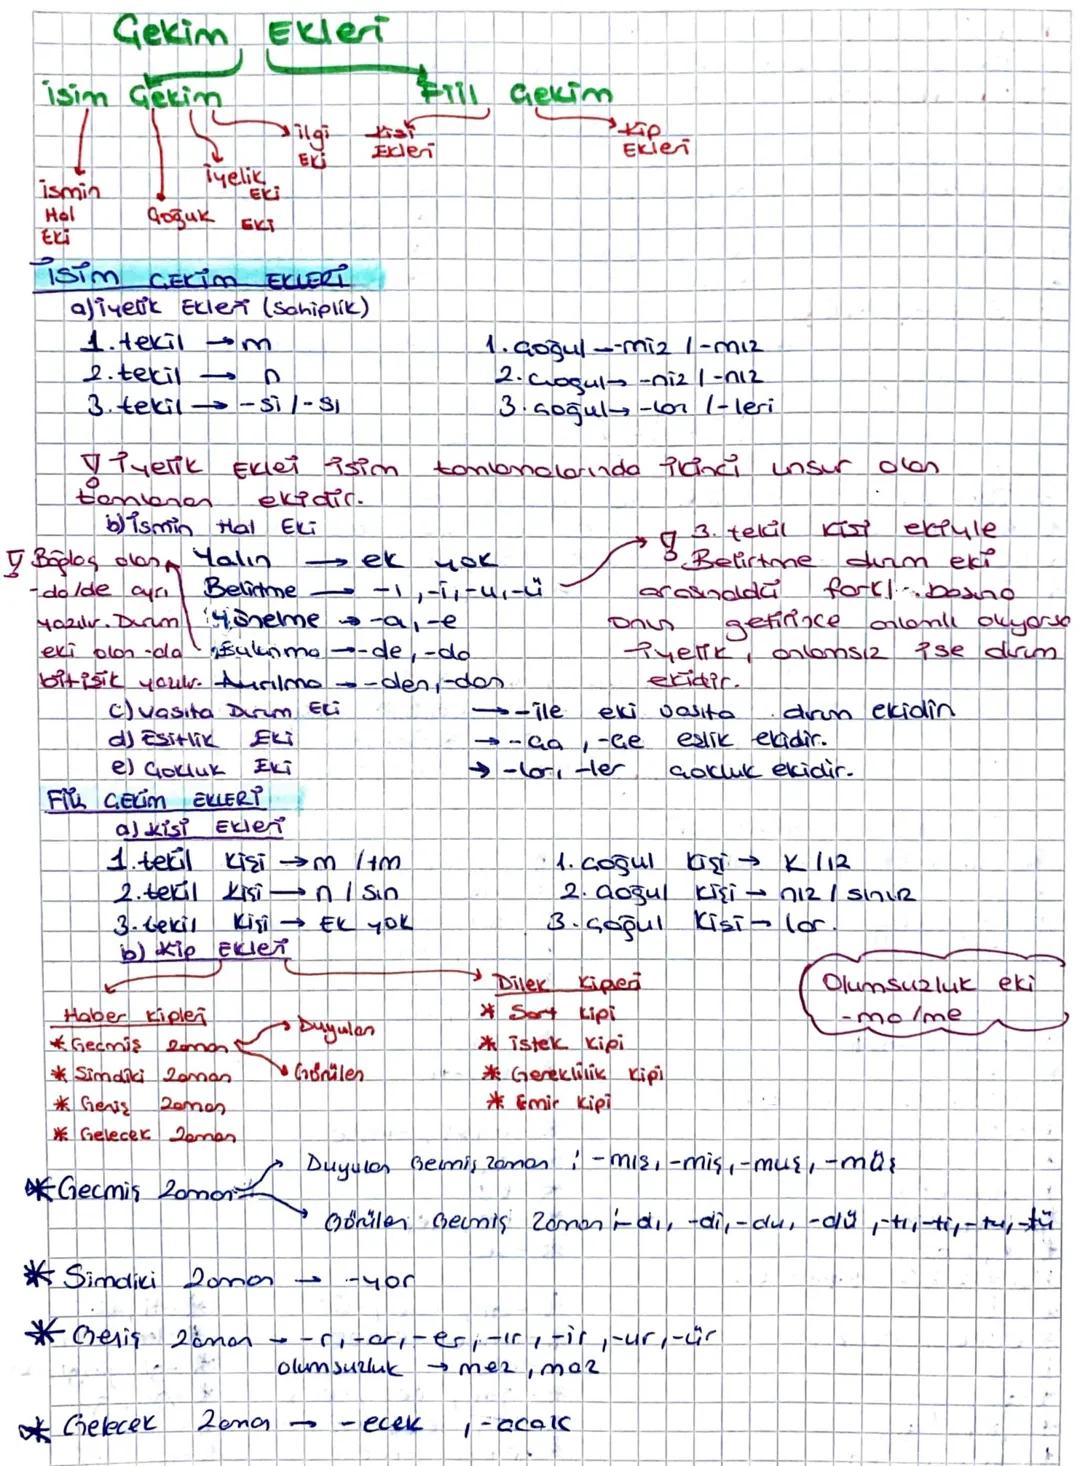 Çekim Ekleri
isim Çekim Fiil Çekim
ismin Hal Eki
Çoğuk Eki
iyelik Eki
ilgi Eki
Kişi Ekleri
Kip Ekleri
İSİM ÇEKİM EKLERİ
a) iyelik Ekleri (Sahiplik)
1. tekil → m 1. çoğul → -miz / -mız
2. tekil → n 2. çoğul → -niz / -nız
3. tekil → -si / -sı 3. çoğul → -lar / -leri
İyelik Eklei isim tamlamalarında ikinci unsur olan
tamlanan ekidir.
b) İsmin Hal Eki
Yalın → ek yok
Belirtme → -ı, -i, -u, -ü
Yönelme → -a, -e
Bulunma → -de, -da
Ayrılma → -den, -dan
Bağlaç olan
-da/de ayrı
yazılır. Durum
eki olan -da
bitişik yazılır.
3. tekil kişi ekiyle
Belirtme durum eki
arasındaki fark: başına
onun getirince anlamlı oluyorsa
iyelik, anlamsız ise durum
ekidir.
c) Vasıta Durum Eki → -ile eki vasıta durum ekidin
d) Eşitlik Eki → -ça, -çe eşlik ekidir.
e) Çokluk Eki → -lar, -ler çokluk ekidir.
FİİL ÇEKİM EKLERİ
a) Kişi Ekleri
1. tekil kişi → m / ım 1. çoğul kişi → k / ız
2. tekil kişi → n / sın 2. çoğul kişi → nız / sınız
3. tekil kişi → Ek yok 3. çoğul kişi → lar.
b) Kip Ekleri
Haber Kipleri
* Geçmiş zaman
Duyulan
Görülen
* Şimdiki zaman
* Geniş zaman
* Gelecek zaman
Dilek Kiperi
* Şart Kipi
* istek Kipi
* Gereklilik Kipi
* Emir Kipi
Olumsuzluk eki
-ma/me
* Geçmiş zaman
Duyulan Gemiş zaman : -mış, -miş, -muş, -müş
Görülen Gecmiş zaman : -dı, -di, -du, -dü, -tı, -ti, -tu, -tü
* Şimdiki zaman → -yor
* Geniş zaman → -r, -ar, -er, -ır, -ir, -ur, -ür
olumsuzluk → mez, maz
* Gelecek zaman → -ecek, -acak